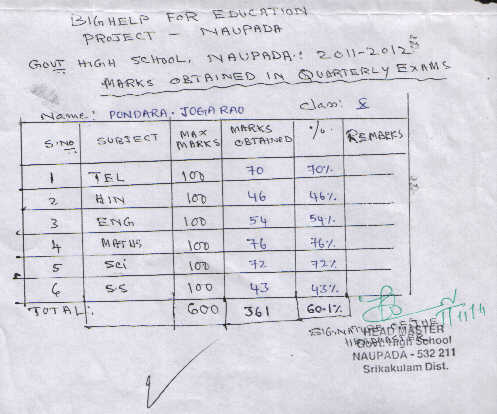 BIGHELP FOR EDUCATION
PROJECT - NAUPADA
GOVT HIGH SCHOOL, NAUPADA: 2011-2012
MARKS OBTAINED IN QUARTERLY EXAMS
Name: PONDARA. JOGARAO class: 8
S.No SUBJECT MAX MARKS MARKS OBTAINED % REMARKS
1 TEL 100 70 70%
2 HIN 100 46 46%
3 ENG 100 54 54%
4 MATHS 100 76 76%
5 Sci 100 72 72%
6 S.S 100 43 43%
TOTAL: 600 361 60.1%
SIGNATURE OF THE
HEADMASTER
HEAD MASTER
Govt. High School
NAUPADA - 532 211
Srikakulam Dist.